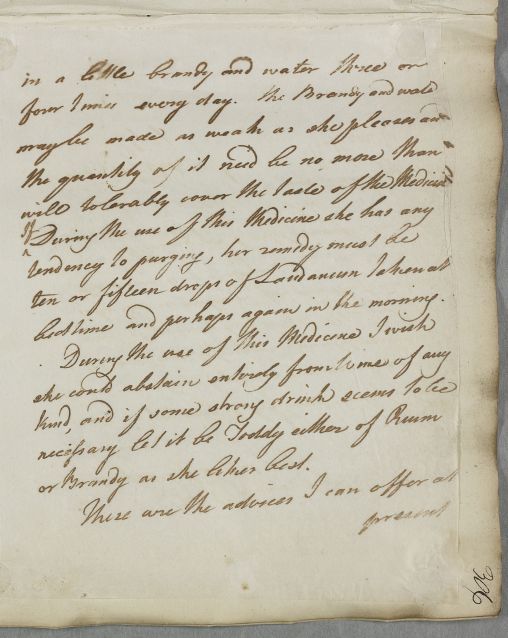 in a little brandy and water three or
four times every day. The Brandy and wate
may be made as weak as she pleases and
the quantity of it need be no more than
will tolerably cover the taste of the Medicin
If During the use of this Medicine she has any
tendency to purging, her remedy must be
ten or fifteen drops of Laudanum taken at
bedtime and perhaps again in the morning.
During the use of this Medicine I wish
she could abstain entirely from wine of any
kind and if some strong drink seems to be
necessary let it be Toddy either of Rum
or Brandy as she likes best.
These are the advices I can offer at
present